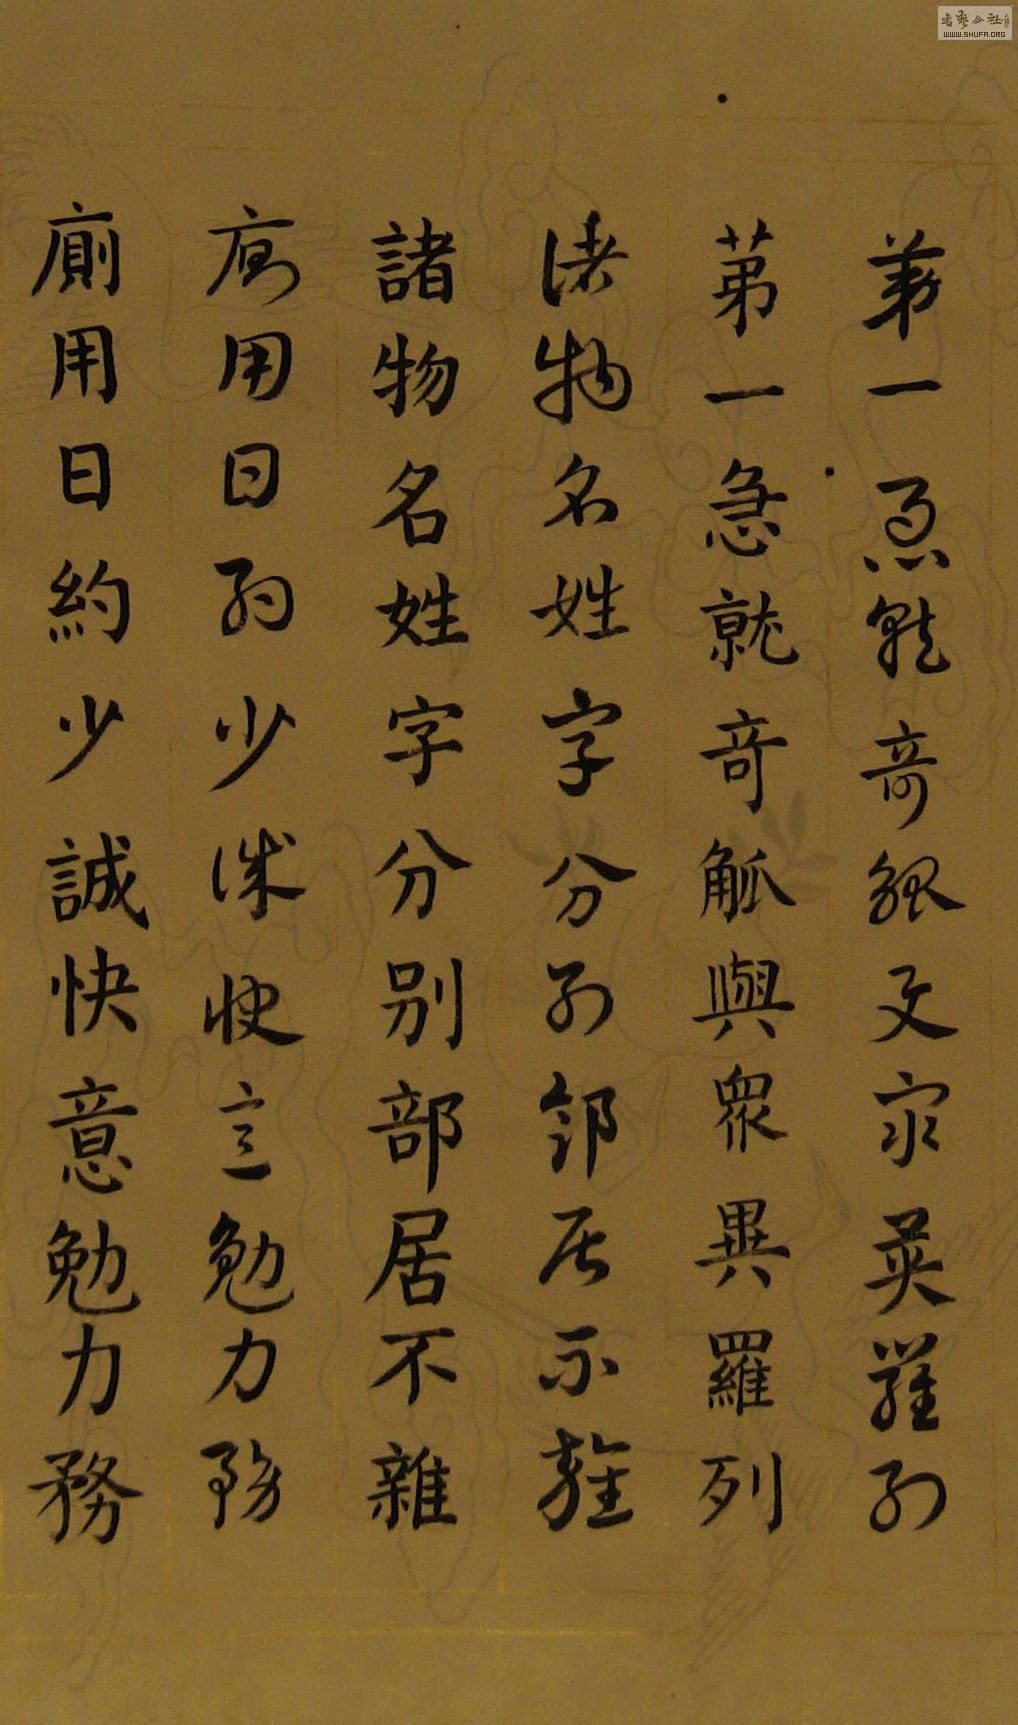 苐一急就奇觚與衆異羅列
苐一急就奇觚與衆異羅列
諸物名姓字分別部居不雜
諸物名姓字分別部居不雜
廁用日約少誠快意勉力務
廁用日約少誠快意勉力務
书艺公社
WWW.SHUFA.ORG